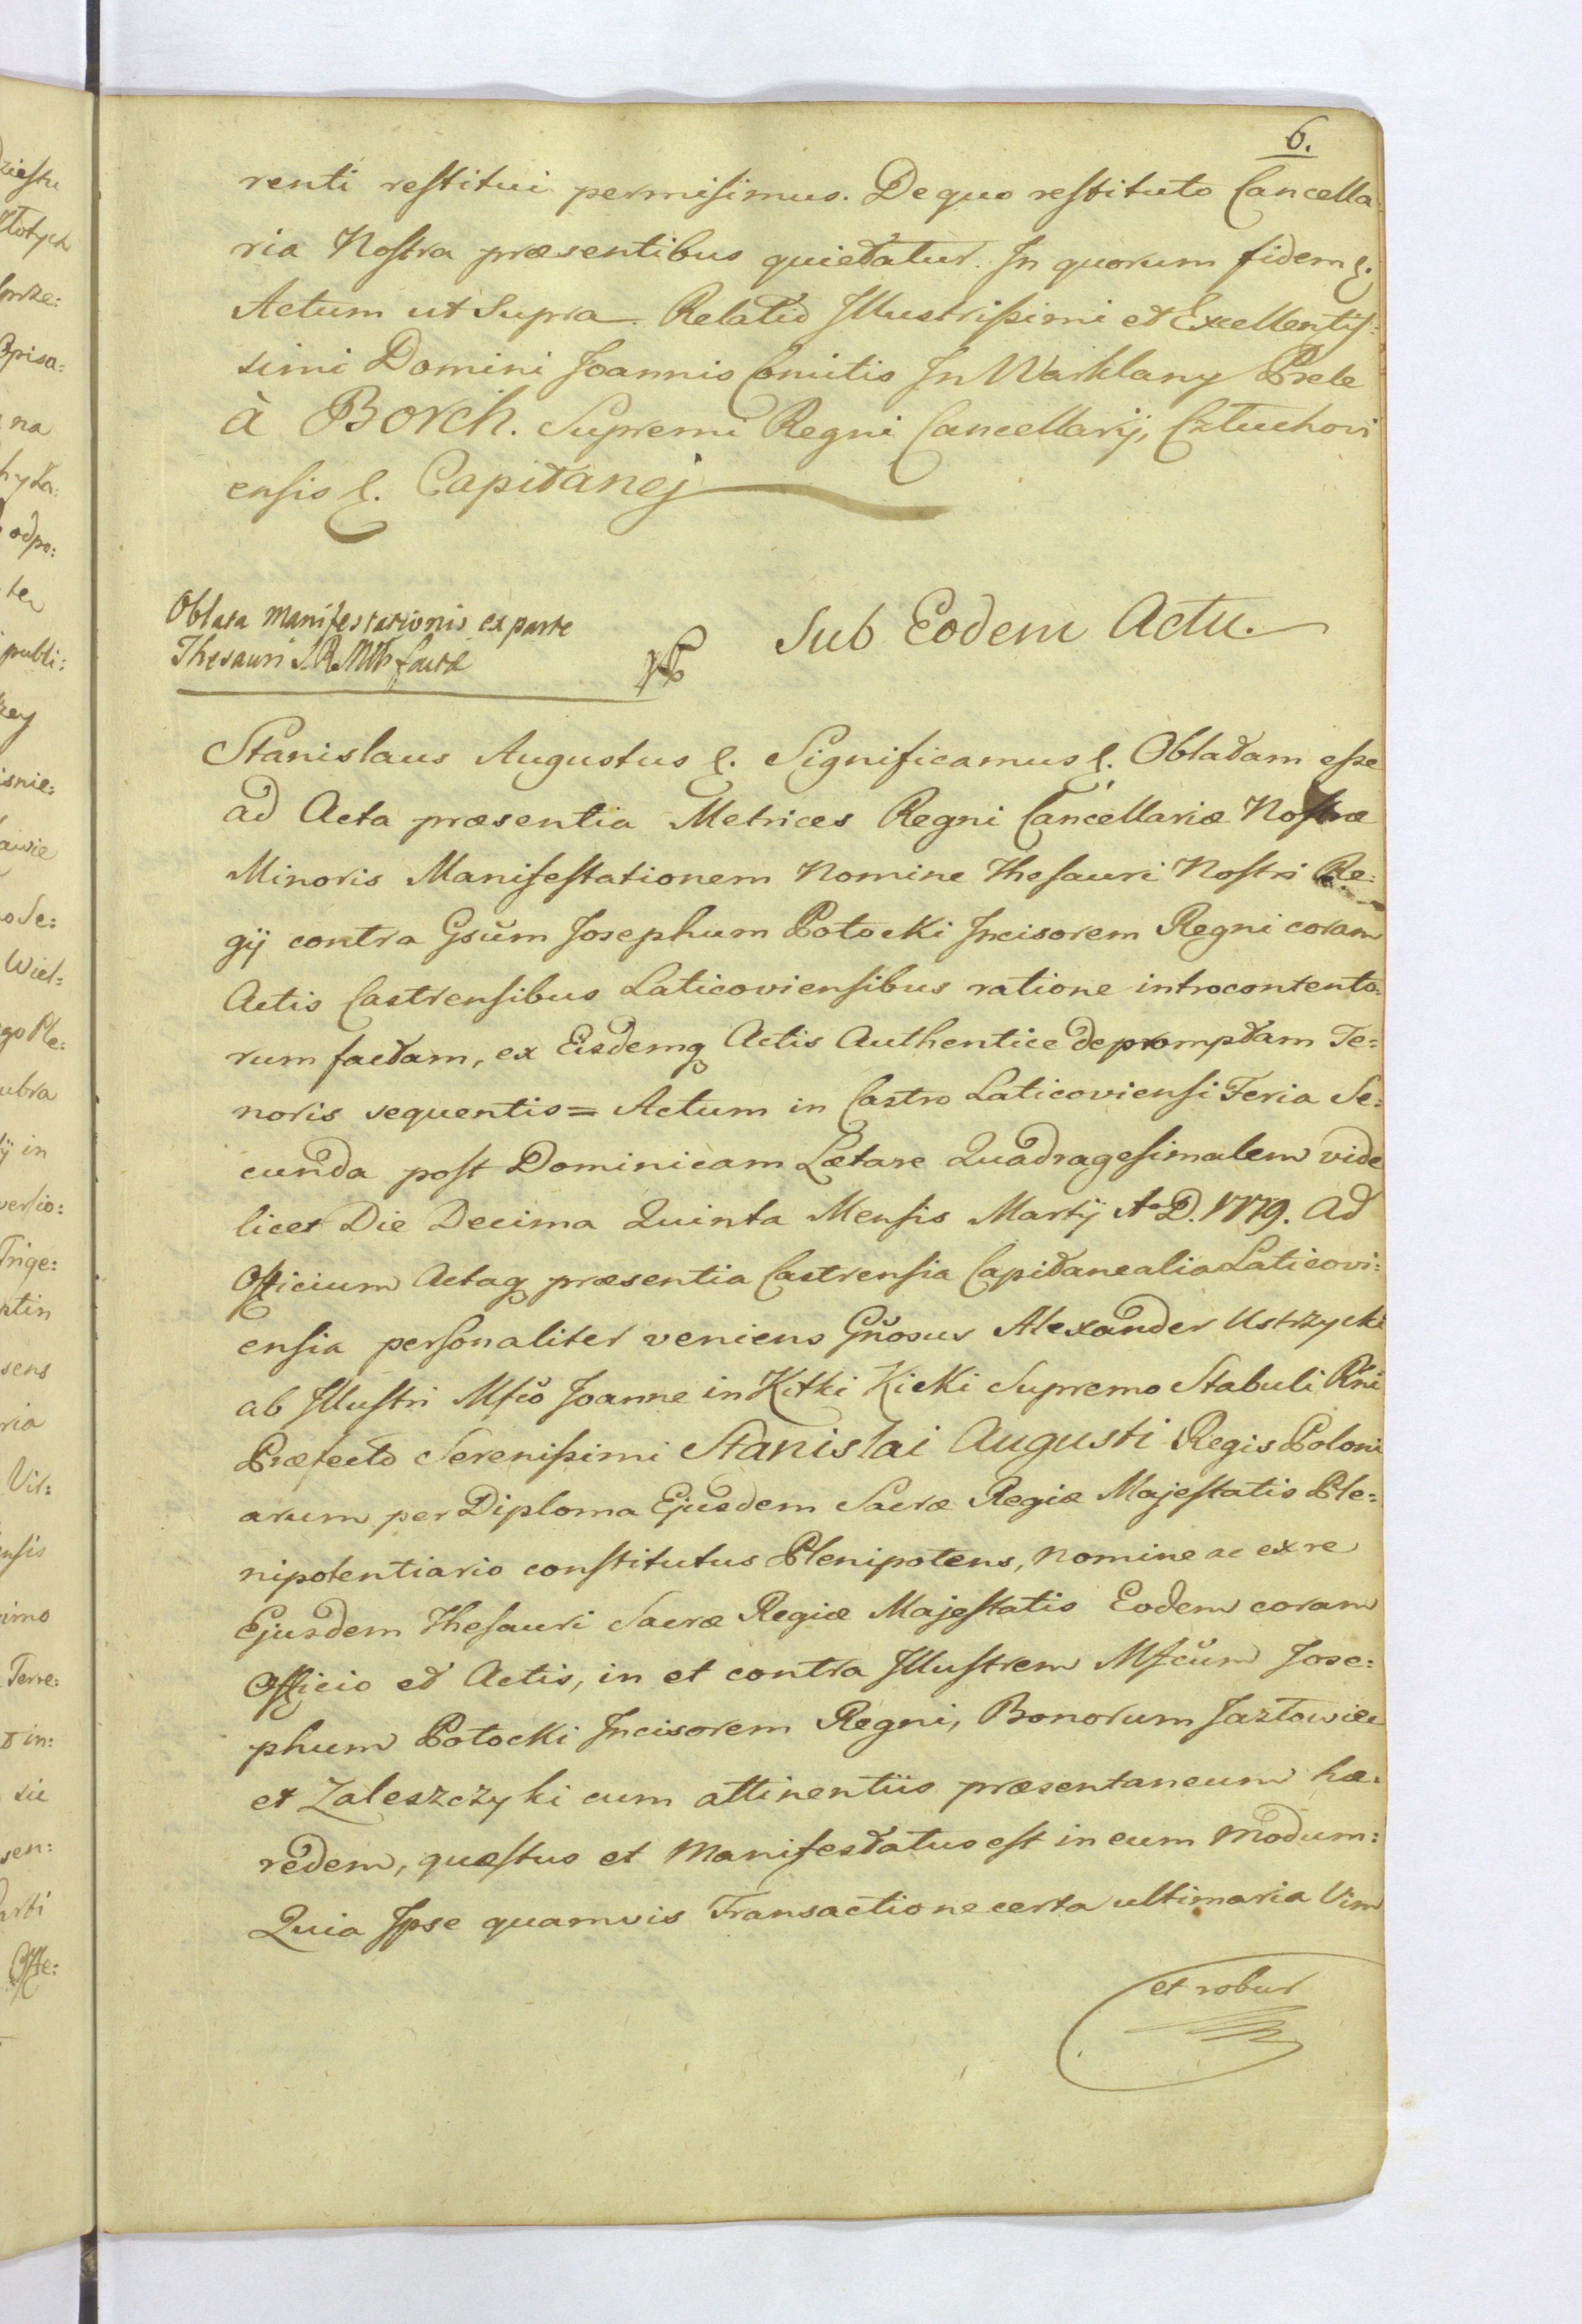 6.
renti restitui permisimus. De quo restituto Cancella
ria Nostra præsentibus quietatur. In quorum fidem &.
Actum ut Supra. Relatio Illustrissimi et Excellentis:
simi Domini Joannis Comitis In Warklany Prele
à Borch. Supremi Regni Cancellarij, Człuchovi
ensis &. Capitanej
Oblata Manifestationis ex parte
Thesauri S. R. Mtis factæ
Sub Eodem Actu.
Stanislaus Augustus &. Significamus &. Oblatam esse
ad Acta præsentia Metrices Regni Cancellariæ Nostræ
Minoris Manifestationem Nomine Thesauri Nostri Re:
gij contra Gsum Josephum Potocki Incisorem Regni coram
Actis Castrensibus Laticoviensibus ratione introcontento:
rum factam, ex Eisdemq Actis Authentice depromptam Te:
noris sequentis= Actum in Castro Laticoviensi Feria Se:
cunda post Dominicam Lætare Quadragesimalem vide
licet Die Decima Quinta Mensis Martij A. D. 1779. Ad
Officium Actaq præsentia Castrensia Capitanealia Laticovi:
ensia personaliter veniens Gnosus Alexander Ustrzycki
ab Illustri Mfco Joanne in Kitki Kicki Supremo Stabuli Rni
Præfecto Serenissimi Stanislai Augusti Regis Poloni
arum per Diploma Ejusdem Sacræ Regiæ Majestatis Ple:
nipotentiario constitutus Plenipotens, nomine ac ex re
Ejusdem Thesauri Sacræ Regiæ Majestatis Eodem coram
Officio et Actis, in et contra Illustrem Mfcum Jose:
phum Potocki Incisorem Regni, Bonorum Jazłowiec
et Zaleszczyki cum attinentiis præsentaneum hæ:
redem, questus et manifestatus est in eum modum:
Quia Ipse quamvis Transactione certa ultimaria Vim
et robur